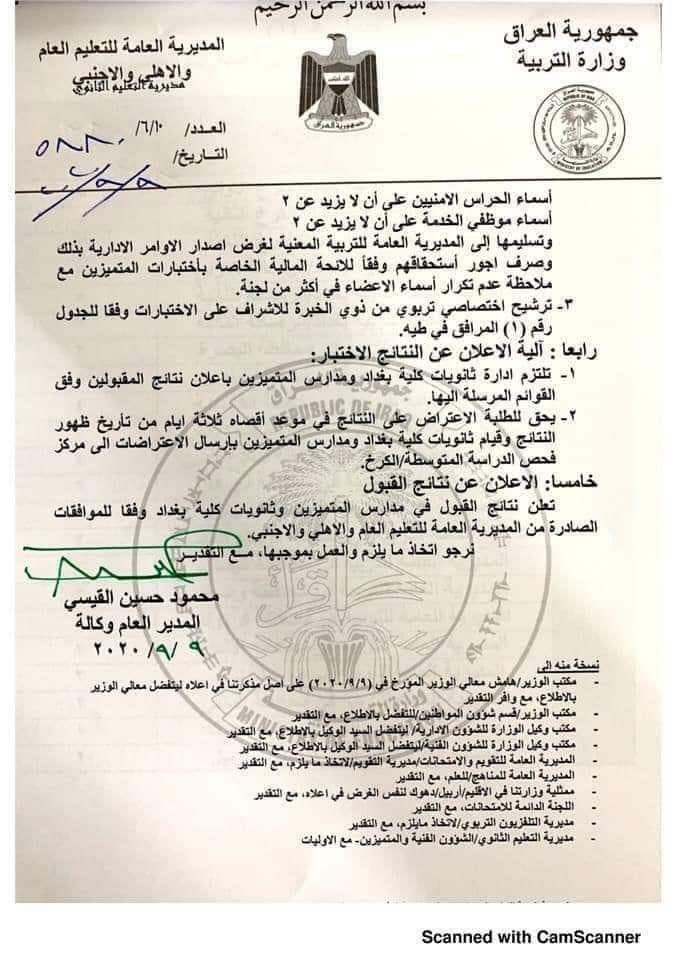 بسم الله الرحمن الرحيم
جمهورية العراق
وزارة التربية
المديرية العامة للتعليم العام
والاهلي والاجنبي
مديرية التعليم الثانوي
جمهورية العراق
REPUBLIC OF IRAQ
MINISTRY OF EDUCATION
العدد/ ٦/١٠/
التاريخ/
أسماء الحراس الامنيين على أن لا يزيد عن ٢
أسماء موظفي الخدمة على أن لا يزيد عن ٢
وتسليمها إلى المديرية العامة للتربية المعنية لغرض اصدار الاوامر الادارية بذلك
وصرف اجور أستحقاقهم وفقاً للائحة المالية الخاصة بأختبارات المتميزين مع
ملاحظة عدم تكرار أسماء الاعضاء في أكثر من لجنة.
٣- ترشيح اختصاصي تربوي من ذوي الخبرة للاشراف على الاختبارات وفقا للجدول
رقم (١) المرافق في طيه.
رابعا: آلية الاعلان عن النتائج الاختبار:
١- تلتزم ادارة ثانويات كلية بغداد ومدارس المتميزين باعلان نتائج المقبولين وفق
القوائم المرسلة اليها.
٢- يحق للطلبة الاعتراض على النتائج في موعد أقصاه ثلاثة ايام من تأريخ ظهور
النتائج وقيام ثانويات كلية بغداد ومدارس المتميزين بإرسال الاعتراضات الى مركز
فحص الدراسة المتوسطة/الكرخ.
خامسا: الاعلان عن نتائج القبول
تعلن نتائج القبول في مدارس المتميزين وثانويات كلية بغداد وفقا للموافقات
الصادرة من المديرية العامة للتعليم العام والاهلي والاجنبي.
نرجو اتخاذ ما يلزم والعمل بموجبها، مع التقدير
محمود حسين القيسي
المدير العام وكالة
٢٠٢٠/٩/٩
نسخة منه إلى
- مكتب الوزير/هامش معالي الوزير المؤرخ في (٢٠٢٠/٩/٩) على اصل مذكرتنا في اعلاه ليتفضل معالي الوزير
بالاطلاع، مع وافر التقدير
- مكتب الوزير/قسم شؤون المواطنين/للتفضل بالاطلاع، مع التقدير
- مكتب وكيل الوزارة للشؤون الادارية/ ليتفضل السيد الوكيل بالاطلاع، مع التقدير
- مكتب وكيل الوزارة للشؤون الفنية/ليتفضل السيد الوكيل بالاطلاع، مع التقدير
- المديرية العامة للتقويم والامتحانات/مديرية التقويم/لاتخاذ ما يلزم، مع التقدير
- المديرية العامة للمناهج/للعلم، مع التقدير
- ممثلية وزارتنا في الاقليم/أربيل/دهوك لنفس الغرض في اعلاه، مع التقدير
- اللجنة الدائمة للامتحانات، مع التقدير
- مديرية التلفزيون التربوي/لاتخاذ مايلزم، مع التقدير
- مديرية التعليم الثانوي/الشؤون الفنية والمتميزين- مع الاوليات
Scanned with CamScanner